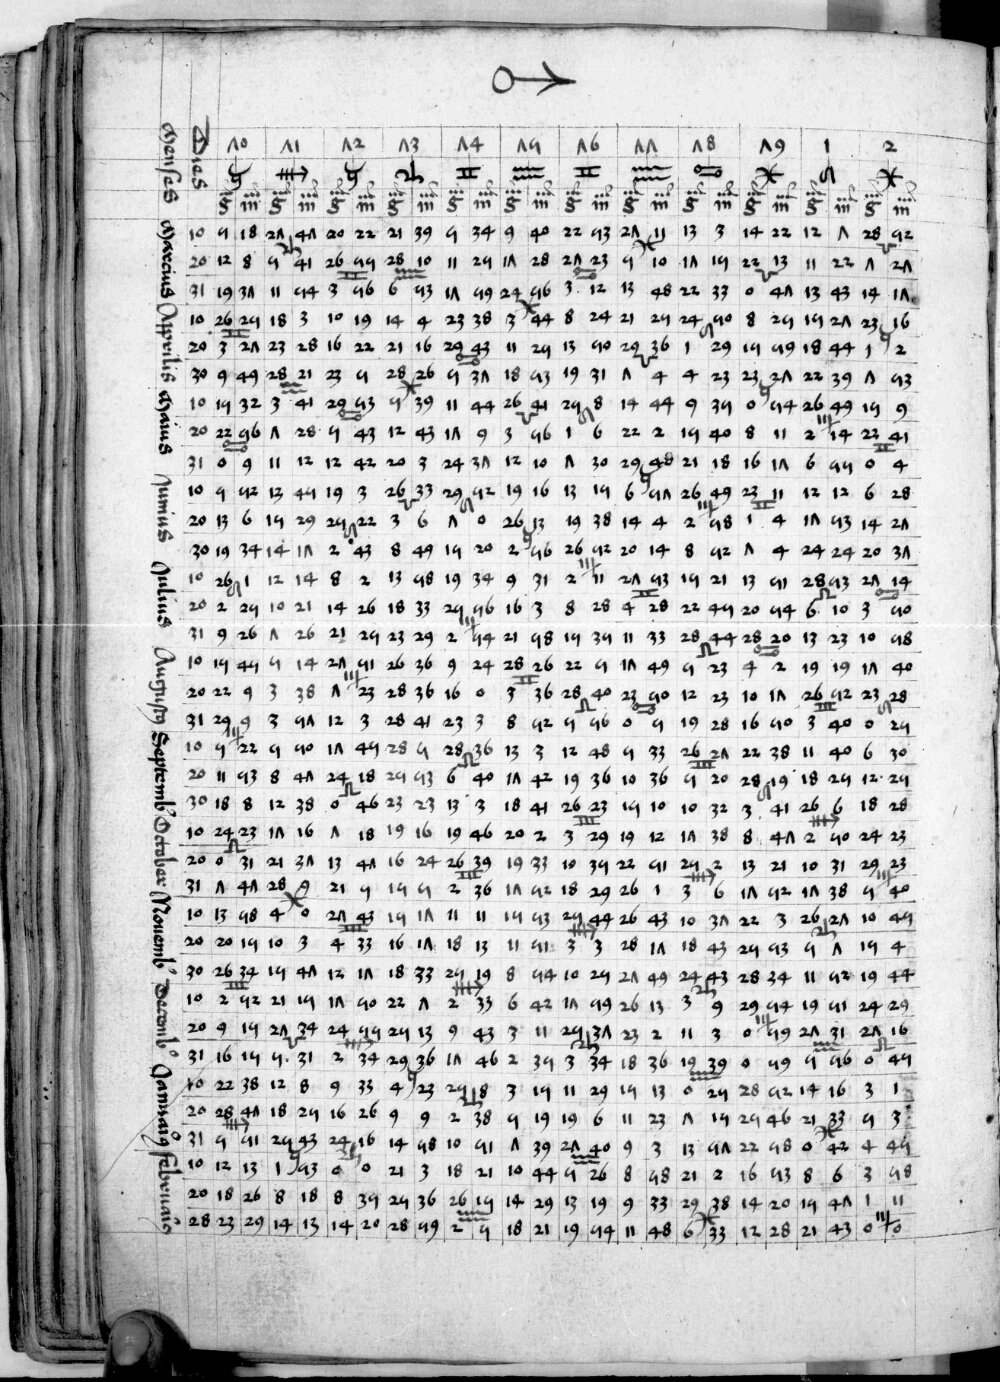 Dies 70 71 72 73 74 75 76 77 78 79 1 2
♉ ♓ ♊ ♒ ♊ ♒ ♋ ♓ ♌ ♓
Marcius 10 5 18 27 47 20 22 21 39 5 34 9 40 22 53 27 11 13 3 14 22 12 7 28 52
20 12 8 5 41 26 55 28 10 11 25 17 28 27 23 5 10 17 15 22 13 11 22 7 27
31 19 37 11 54 3 56 6 53 17 59 24 56 3 12 13 48 22 33 0 47 13 43 14 17
Aprilis 10 26 25 18 3 10 19 14 4 23 38 3 44 8 24 21 25 24 50 8 25 15 27 23 16
20 3 27 23 28 16 22 21 16 29 43 11 25 13 50 29 36 1 29 15 59 18 44 1 2
30 9 49 28 21 23 5 28 26 5 37 18 53 19 31 7 4 4 23 23 27 22 39 7 53
Maius 10 15 32 3 41 29 53 5 39 11 44 26 41 25 8 14 44 9 35 0 54 26 49 15 9
20 22 56 7 28 5 43 12 43 17 9 3 56 1 6 22 2 15 40 8 11 2 14 22 41
31 0 9 11 12 12 42 20 3 24 37 12 10 7 30 29 48 21 18 16 17 6 55 0 4
Junius 10 5 52 13 45 19 3 26 33 29 52 19 16 13 15 6 57 26 49 23 11 12 12 6 28
20 13 6 15 29 25 22 3 6 7 0 26 13 19 38 14 4 2 58 1 4 17 53 14 27
30 19 34 14 17 2 43 8 49 15 20 2 56 26 52 20 14 8 52 7 4 24 24 20 37
Julius 10 26 1 12 14 8 2 13 58 19 34 9 31 2 11 27 53 15 21 13 51 28 53 27 14
20 2 25 10 21 14 26 18 33 25 56 16 3 8 28 4 28 22 45 20 54 6 10 3 50
31 9 26 7 26 21 25 23 29 2 54 21 58 15 35 11 33 28 44 28 20 13 23 10 58
Augusty 10 15 45 5 14 27 51 26 36 9 24 28 26 22 5 17 49 5 23 4 2 19 19 17 40
20 22 9 3 38 7 23 28 36 16 0 3 36 28 40 23 50 12 23 10 17 26 52 23 28
31 29 9 3 57 12 3 28 41 23 3 8 52 5 56 0 5 19 28 16 50 3 40 0 25
Septemb 10 5 22 5 50 17 45 28 5 28 36 13 3 12 48 5 33 26 27 22 38 11 40 6 30
20 11 53 8 47 24 18 25 53 6 40 17 42 19 36 10 36 5 20 28 19 18 25 12 25
30 18 8 12 38 0 46 23 23 13 3 18 41 26 23 15 10 10 32 3 41 26 6 18 28
October 10 24 23 17 16 7 18 19 16 19 46 20 2 3 29 19 12 17 38 8 47 2 50 24 23
20 0 31 21 37 13 47 16 24 26 39 19 33 10 35 22 51 25 2 13 21 10 31 29 23
31 7 47 28 9 21 5 15 5 2 36 17 52 18 29 26 1 3 6 17 52 17 38 5 40
Nouemb 10 13 58 4 0 27 43 15 17 11 11 15 53 25 44 26 43 10 37 22 3 26 27 10 45
20 20 15 10 3 4 33 16 17 18 13 11 51 3 3 28 17 18 43 25 53 5 7 15 4
30 26 34 15 47 12 17 18 33 25 19 8 54 10 25 27 49 24 43 28 34 11 52 19 44
Decemb 10 2 52 21 15 17 50 22 7 2 33 6 42 17 55 26 13 3 9 29 54 19 51 24 29
20 9 15 27 34 24 55 25 13 9 43 3 11 25 37 23 2 11 3 0 59 27 31 27 16
31 16 15 5 31 2 34 29 36 17 46 2 35 3 34 18 36 19 39 0 59 5 56 0 45
Januaig 10 22 38 12 8 9 33 4 23 25 18 3 15 11 29 15 13 0 25 28 52 14 16 3 1
20 28 47 18 25 16 26 9 9 2 38 5 19 19 6 11 23 7 15 25 46 21 33 5 3
31 5 51 25 43 24 16 14 58 10 51 7 39 27 40 9 3 13 57 22 58 0 42 4 45
februaig 10 12 13 1 53 0 0 21 3 18 21 10 44 5 26 8 58 21 2 16 53 8 6 3 58
20 18 26 8 18 8 35 25 36 26 15 14 29 13 19 9 33 29 38 14 20 15 47 1 11
28 23 29 14 13 14 20 28 59 2 5 18 21 19 54 11 48 6 33 12 28 21 43 0 0